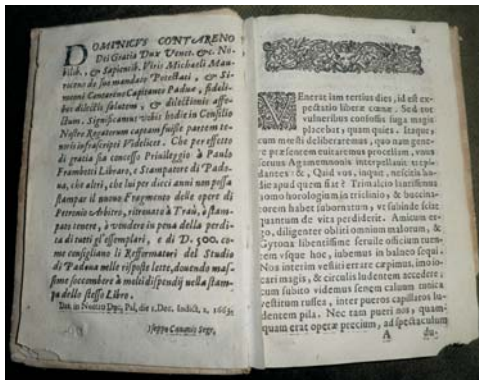 DOMINICVS CONTARENO
Dei Gratia Dux Venet. &c. No-
bilib., & Sapientib. Viris Michaeli Mau-
roceno de suo mandato Potestati, & Si-
meoni Contareno Capitaneo Padue, fideli-
bus dilectis salutem, & dilectionis affe-
ctum. Significamus vobis hodie in Consilio
Nostro Rogatorum captam fuisse partem te-
noris infrascripti Videlicet. Che per effetto
di gracia sia concesso Priuileggio à Paulo
Frambotti Libraro, e Stampatore di Pado-
ua, che altri, che lui per dieci anni non possa
stampar il nuouo Fragmento delle opere di
Petronio Arbitro, ritrouato à Traù, ò stam-
pato tenere, ò vendere in pena della perdi-
ta di tutti gl'essemplari, e di D. 500. co-
me consigliano li Refformatori del Studio
di Padoua nelle risposte lette, douendo mas-
sime soccombere à molti dispendij nella stam-
pa dello stesso Libro.
Dat. in Nostro Duc. Pal. die 1. Dec. Indict. 2. 1663.
Iseppo Secr.
VEnerat iam tertius dies, id est ex-
pectatio liberæ cœnæ. Sed tot
vulneribus confossis fuga magis
placebat, quam quies. Itaque,
cum mœsti deliberaremus, quo nam gene-
re præsentem euitaremus procellam, vnus
seruus Agamemnonis interpellauit trepi-
dantes: &, Quid vos, inquit, nescitis ho-
die apud quem fiat? Trimalcio lautissimus
homo horologium in triclinio, & buccina-
torem habet subornatum, vt subinde sciat
quantum de vita perdiderit. Amicum er-
go, diligenter obliti omnium malorum, &
Gytona libentissime seruile officium tuen-
tem vsque hoc, iubemus in balneo sequi.
Nos interim vestiti errare cœpimus, imò io-
cari magis, & circulis ludentem accedere;
cum subito videmus senem caluum tunica
vestitum russea, inter pueros capillatos lu-
dentem pila. Nec tam pueri nos, quam-
quam erat operæ precium, ad spectaculum
A du-